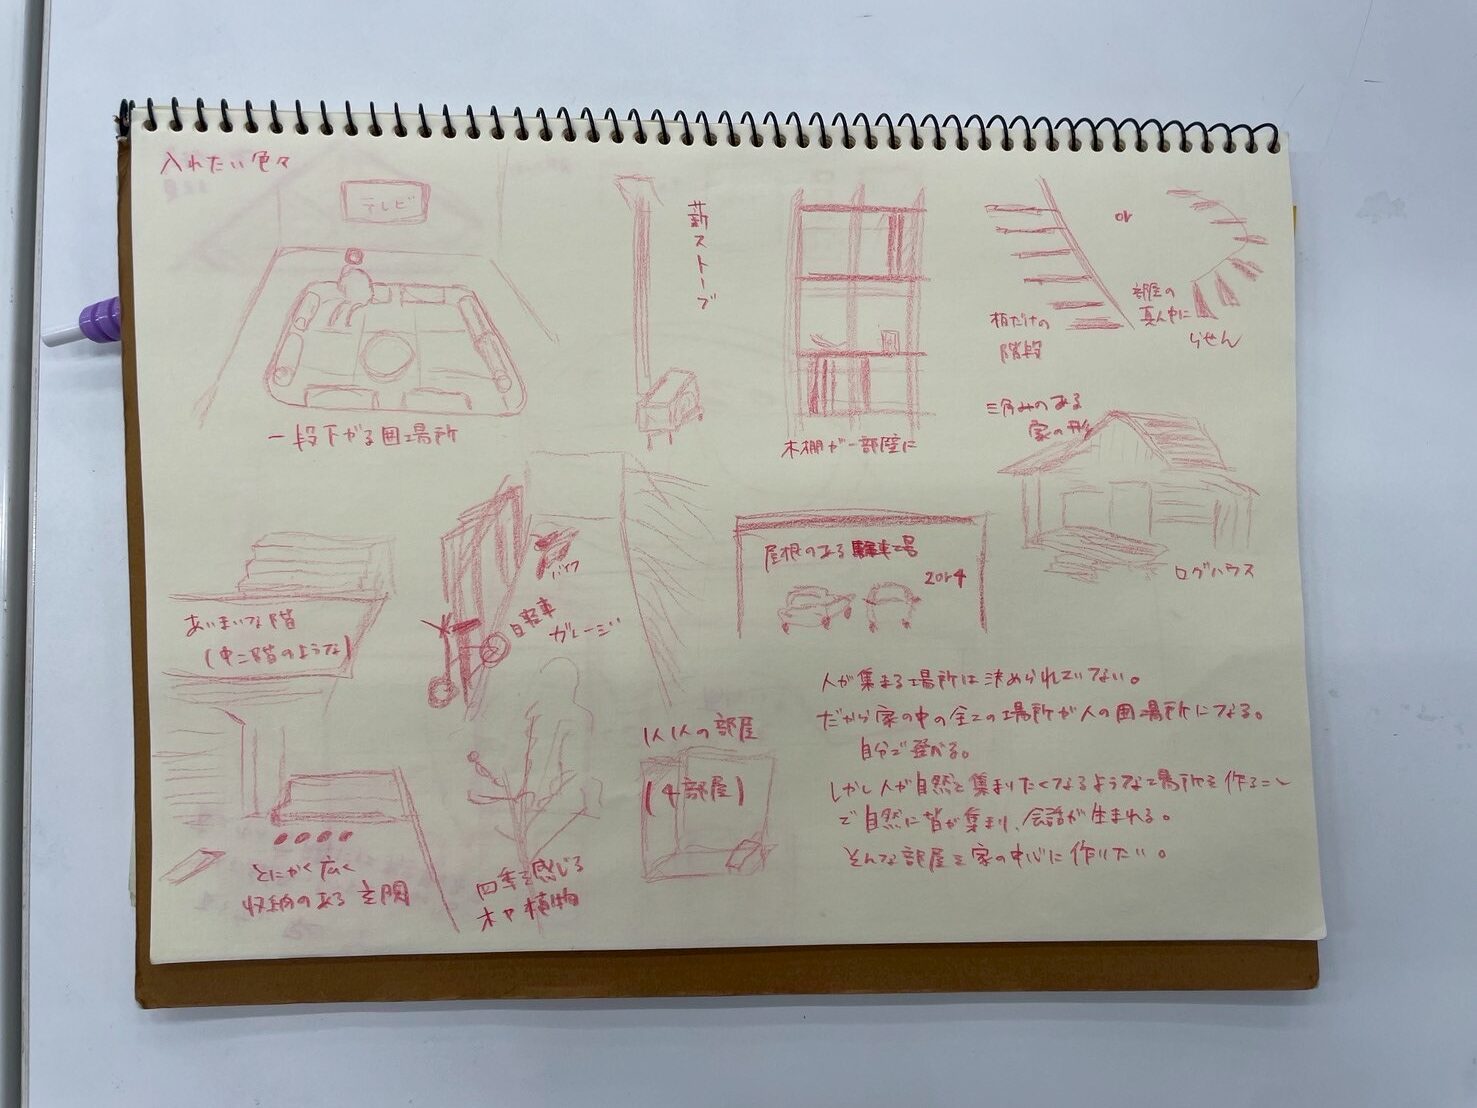 入れたい色々
テレビ
一段下がる囲場所
薪ストーブ
本棚が一部壁に
板だけの
階段
or
部屋の
真ん中に
らせん
三角みのある
家の形
ログハウス
あいまいな階
(中二階のような)
バイク
自転車
ガレージ
屋根のある駐車場
2or4
とにかく広く
収納のある玄関
四季を感じる
木や植物
1人1人の部屋
(4部屋)
人が集まる場所は決められていない。
だから家の中の全ての場所が人の囲場所になる。
自分で選べる。
しかし人が自然と集まりたくなるような場所を作ること
で自然に皆が集まり、会話が生まれる。
そんな部屋を家の中心に作りたい。